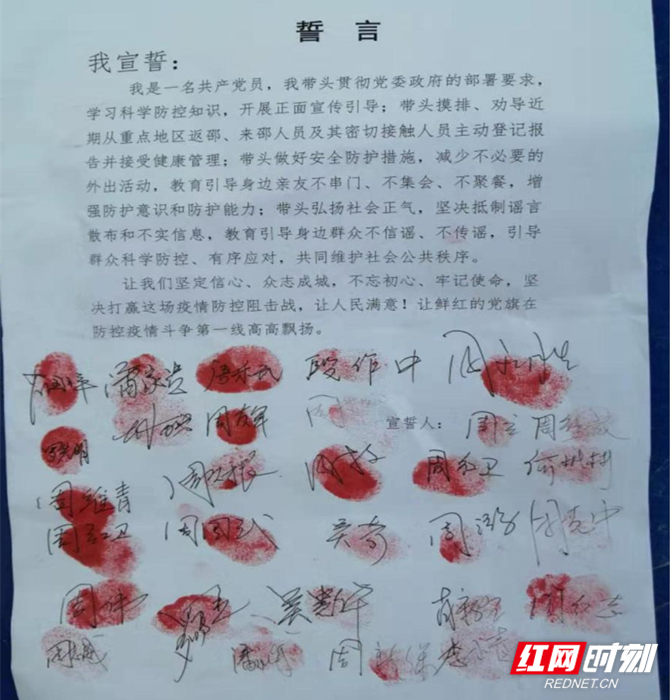 誓 言
我宣誓：
我是一名共产党员，我带头贯彻党委政府的部署要求，
学习科学防控知识，开展正面宣传引导；带头摸排、劝导近
期从重点地区返邵、来邵人员及其密切接触人员主动登记报
告并接受健康管理；带头做好安全防护措施，减少不必要的
外出活动，教育引导身边亲友不串门、不集会、不聚餐，增
强防护意识和防护能力；带头弘扬社会正气，坚决抵制谣言
散布和不实信息，教育引导身边群众不信谣、不传谣，引导
群众科学防控、有序应对，共同维护社会公共秩序。
让我们坚定信心、众志成城，不忘初心、牢记使命，坚
决打赢这场疫情防控阻击战，让人民满意！让鲜红的党旗在
防控疫情斗争第一线高高飘扬。
段作中
宣誓人：
周红卫
周维青
周红卫
吴奇
红网时刻
REDNET.CN